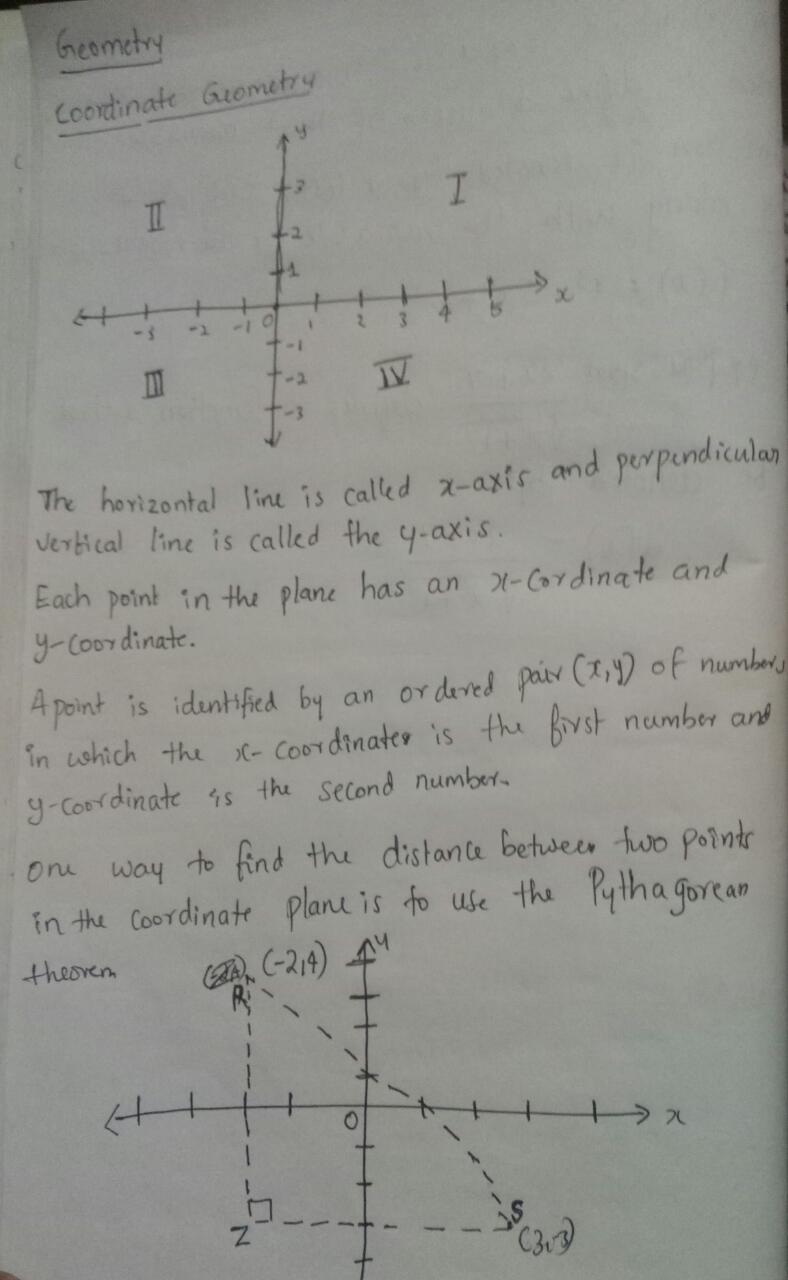 Geometry
Coordinate Geometry
y
3
I
II
2
1
-3 -2 -1 0 1 2 3 4 5 x
-1
III
-2
IV
-3
The horizontal line is called x-axis and perpendicular
vertical line is called the y-axis.
Each point in the plane has an x-Cordinate and
y-coordinate.
A point is identified by an ordered pair (x,y) of numbers
in which the x-coordinates is the first number and
y-coordinate is the second number.
One way to find the distance between two points
in the coordinate plane is to use the Pythagorean
theorem (-2,4) y
R
0 x
S
Z (3,-3)